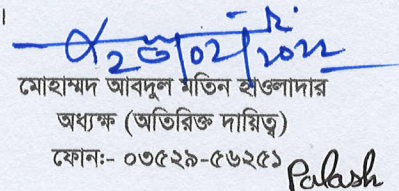 ২৩/০২/২০২২
মোহাম্মদ আবদুল মতিন হাওলাদার
অধ্যক্ষ (অতিরিক্ত দায়িত্ব)
ফোন:- ০৩৫২৯-৫৬২৫১
Palash